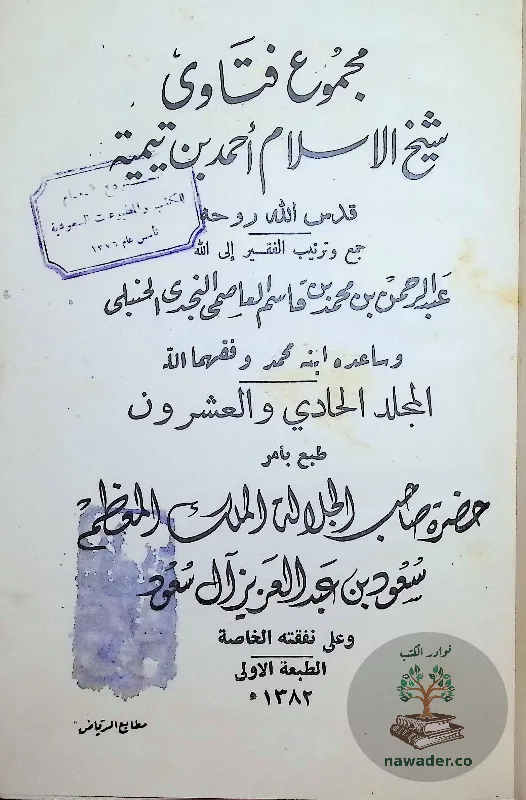 مجموع فتاوى
شيخ الاسلام أحمد بن تيمية
قدس الله روحه
جمع وترتيب الفقير إلى الله
عبد الرحمن بن محمد بن قاسم العاصمي النجدي الحنبلي
وساعده ابنه محمد وفقهما الله
المجلد الحادي والعشرون
طبع بأمر
حضرة صاحب الجلالة الملك المعظم
سعود بن عبد العزيز آل سعود
وعلى نفقته الخاصة
الطبعة الاولى
١٣٨٢ هـ
مطابع الرياض
للكتب والمطبوعات السعودية
تأسس عام ١٣٧٦
نوادر الكتب
nawader.co